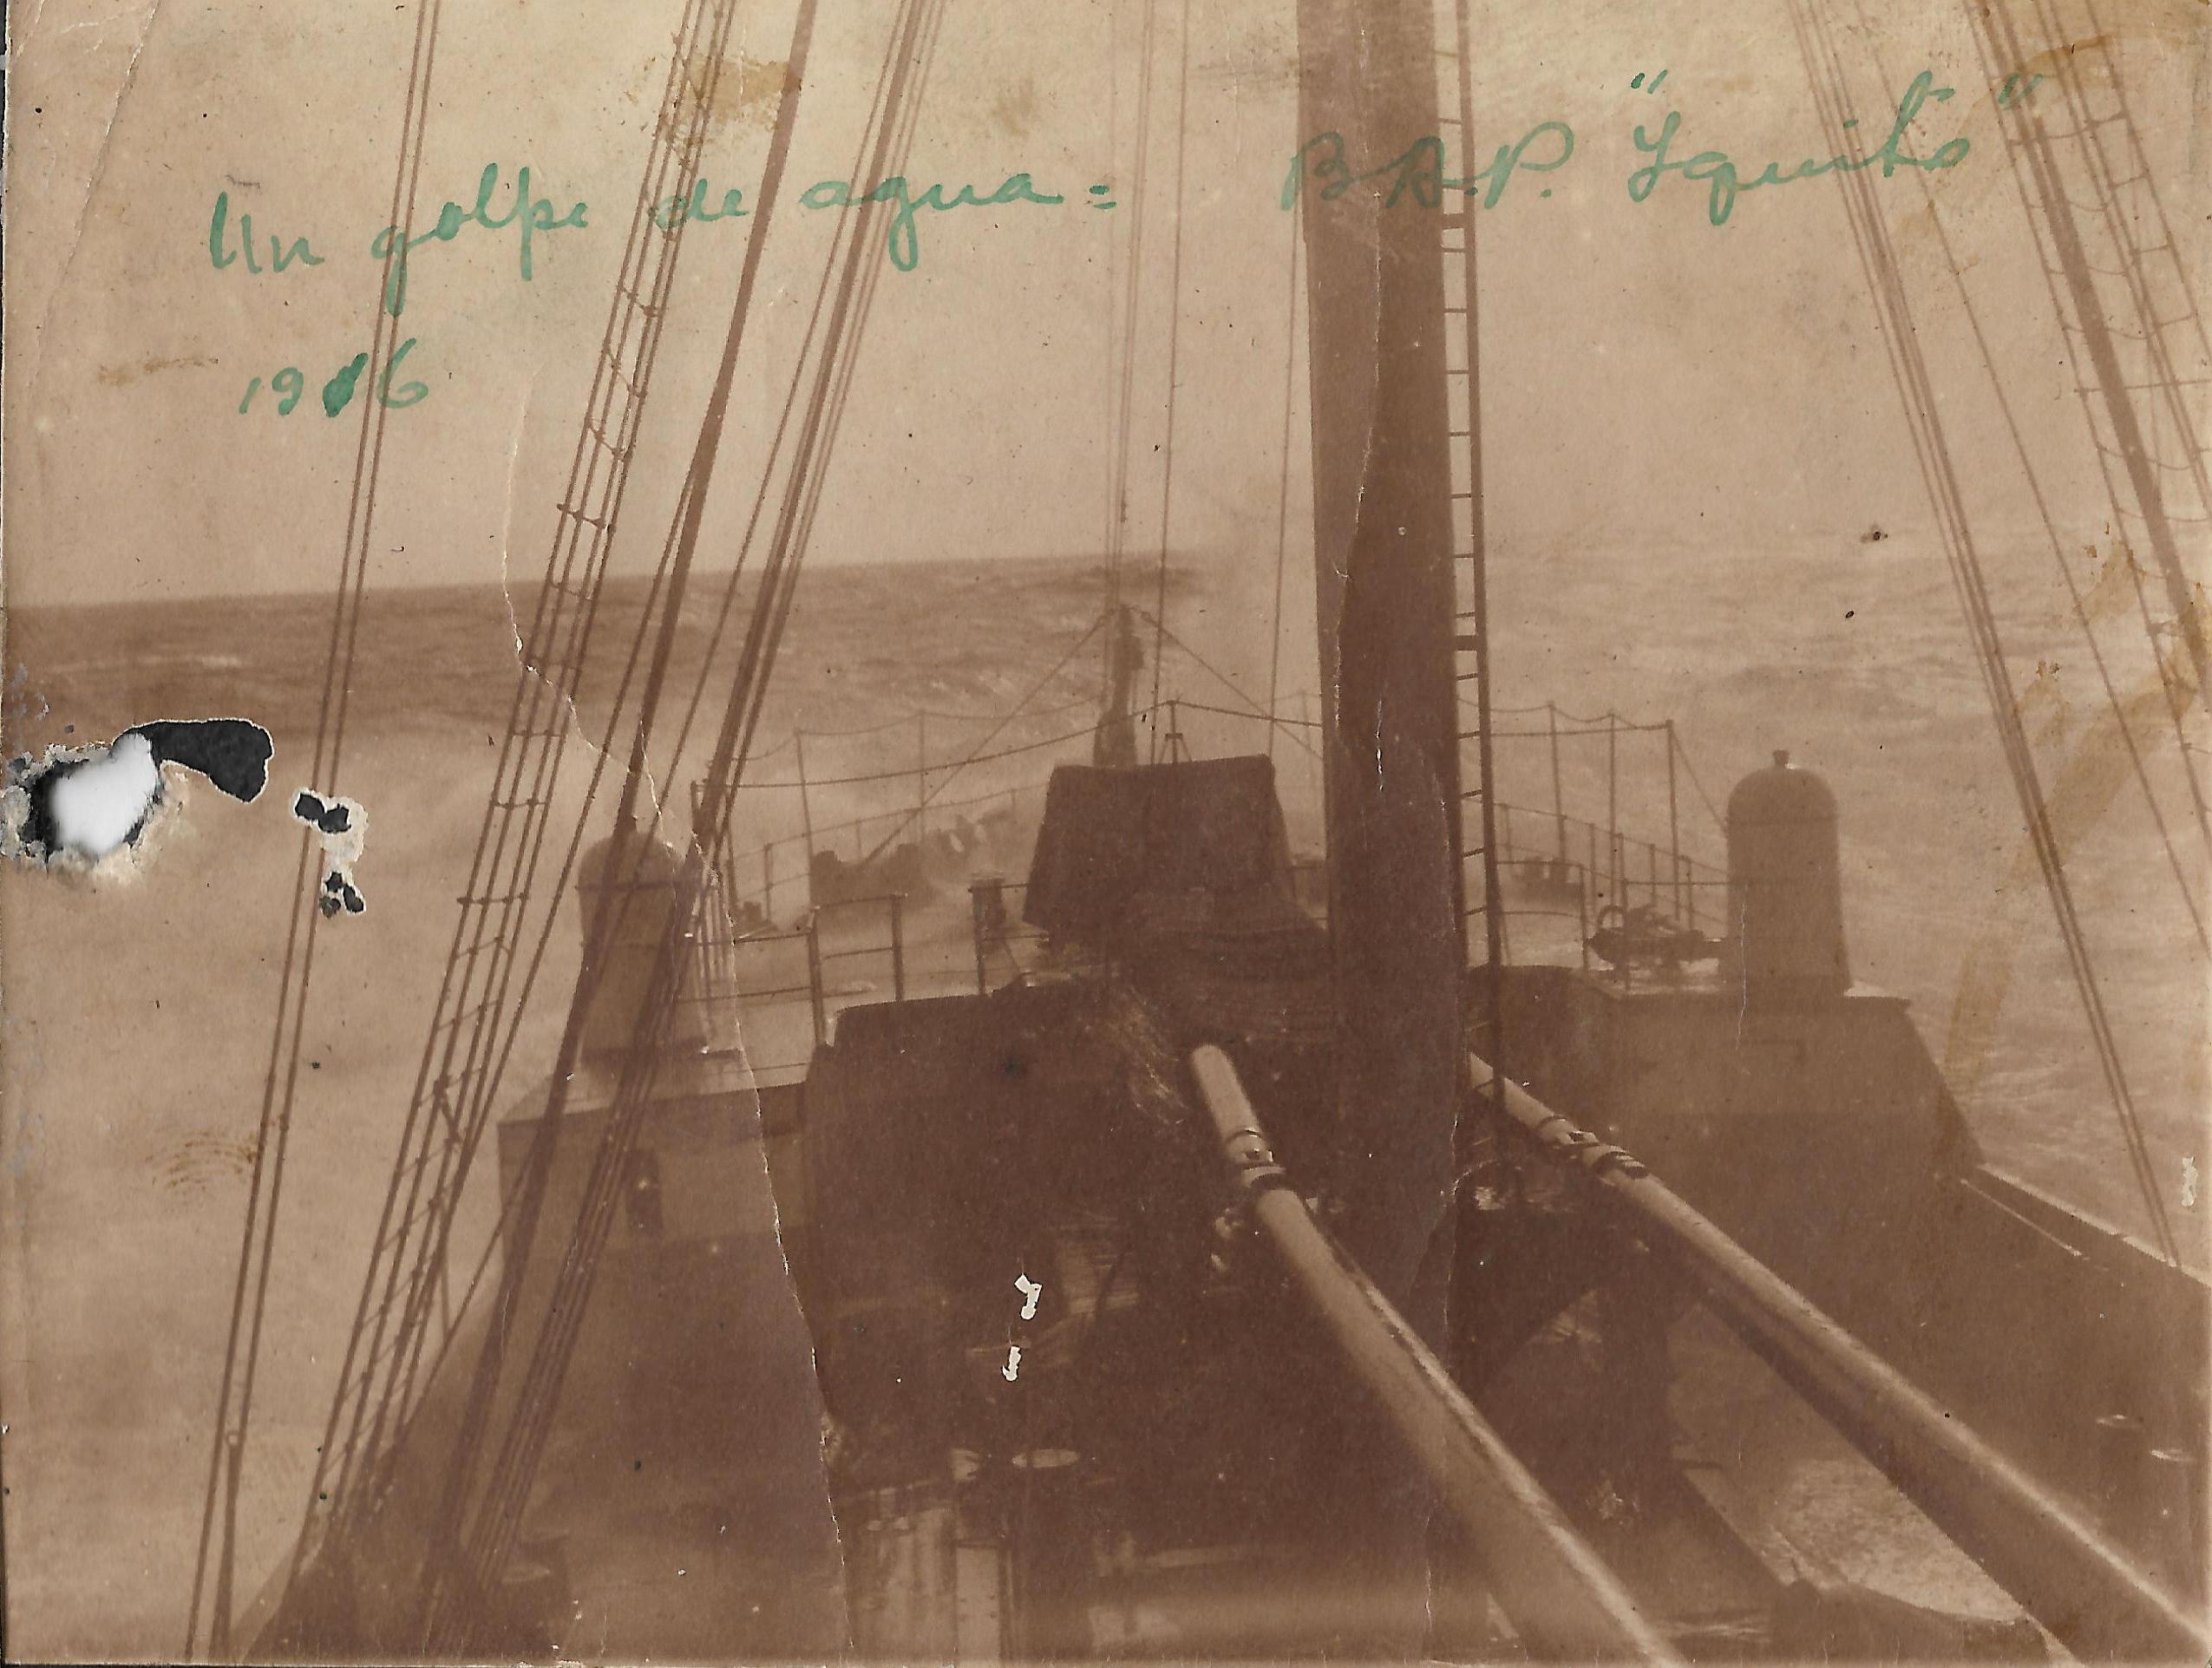 Un golpe de agua = B.A.P. "Iquitos"
1916